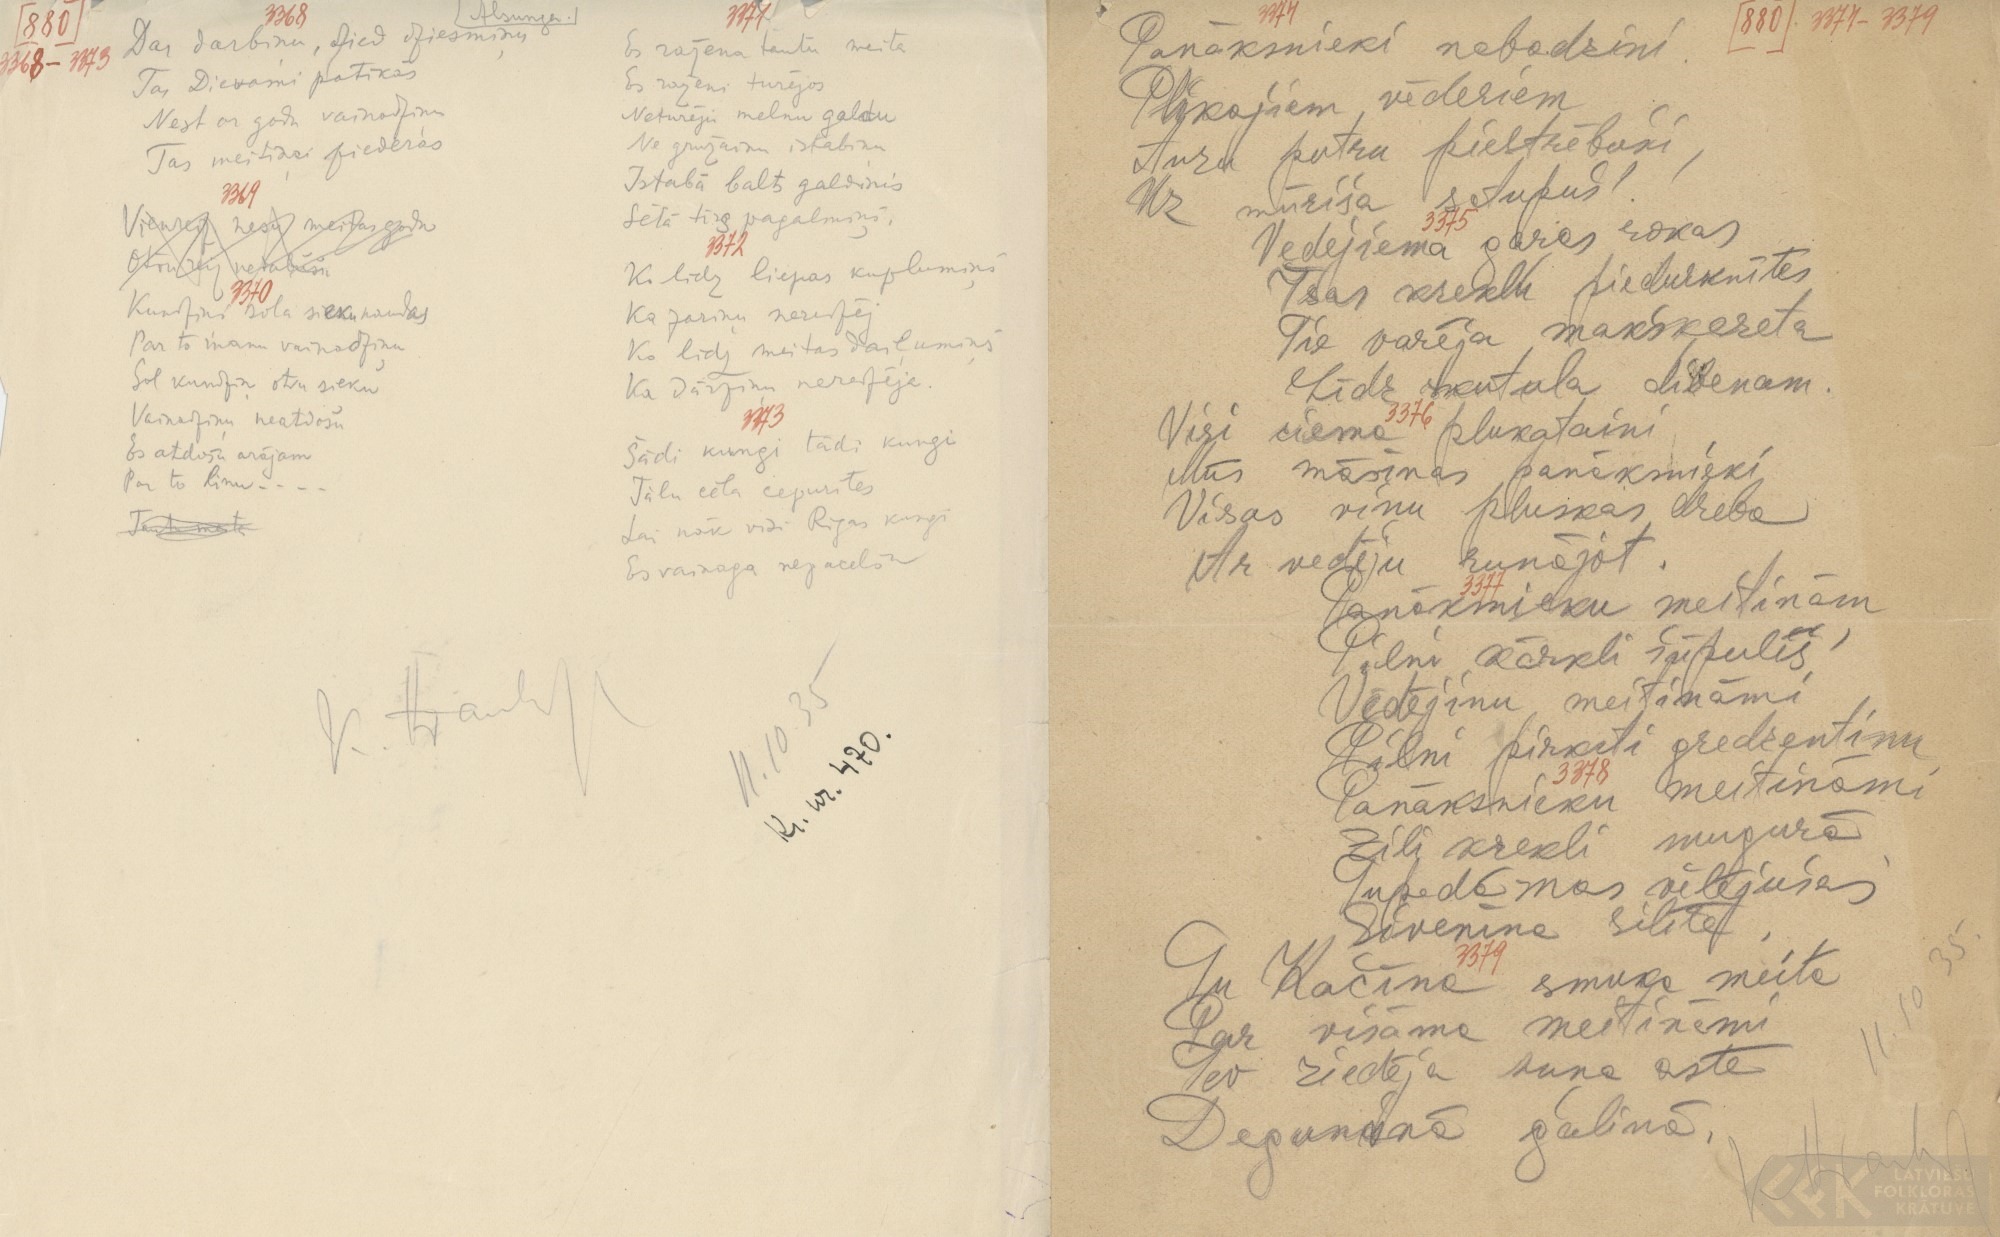 [880]
3368 – 3373
3368
[Alsunga.]
Dar darbiņu, dzied dziesmiņu
Tas Dievami patikās
Nest ar godu vainadziņu
Tas meitiņai piederās
3369
Vienreiz nesu meitas godu
Otrureiz
3370
Kundziņi sola sieku naudas
Par to manu vainadziņu
Sol kundziņ otru sieku
Vainadziņu neatdošu
Es atdošu arājam
Par to linu - - - -
3371
Esražena tautu meita
Es raženi turējos
Neturēju melnu galdu
Ne gružainu istabiņu
Istabā balts galdiņis
Sētā tīrs pagalmiņš.
3372
Ko līdz liepas kuplumiņš
Ka zariņu neredzēj
Ko līdz meitas daiļumiņš
Ka dārziņu neredzēja.
3373
Šādi kungi tādi kungi
Tālu cēla cepurītes
Lai nāk visi Rīgas kungi
Es vainaga nepacelšu
11.10 35
Kr. nr. 470.
3374
[880]. 3374 – 3379
Panāksnieki nabadziņi
Plikajiem vēderiem
Auzu putru piestrēbuši,
Uz mūriša satupuš!
3375
Vedējiema garas rokas
Īsas kreklu piedurknītes
Tie varēja makšķerēta
Līdz katula dibenam.
3376
Visi ciema plukataiņi
Mūs māsiņas panāksnieki
Visas viņu pluskas dreba
Ar vedēju runājot.
3377
Panāksnieku meitiņām
Pilni kārkli šūpulīš!
Vedējiņu meitiņāmi
Pilni pirksti gredzentiņu
3378
Panāksnieku meitiņāmi
Zili krekli mugurā
Sivēniņa silītē,
3379
Tu Kačiņa smuka meita
Par visāma meitiņāmi
Tev ziedēja suņa aste
Deguniņā galiņā.
11.10 35.
LATVIEŠU
FOLKLORAS
KRĀTUVE